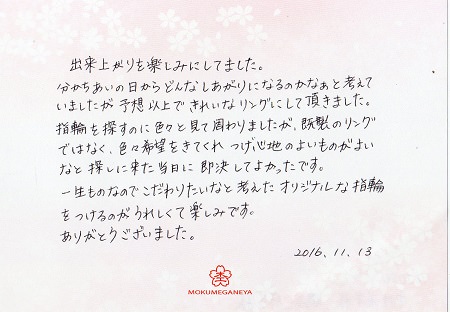 出来上がりを楽しみにしてました。
分かちあいの日からどんなしあがりになるのかなぁと考えて
いましたが予想以上できれいなリングにして頂きました。
指輪を探すのに色々と見て周わりましたが、既製のリング
ではなく、色々希望をきてくれ つけ心地のよいものがよい
なと探しに来た当日に即決してよかったです。
一生ものなのでこだわりたいなと考えたオリジナルな指輪
をつけるのがうれしくて楽しみです。
ありがとうございました。
2016.11.13
MOKUMEGANEYA